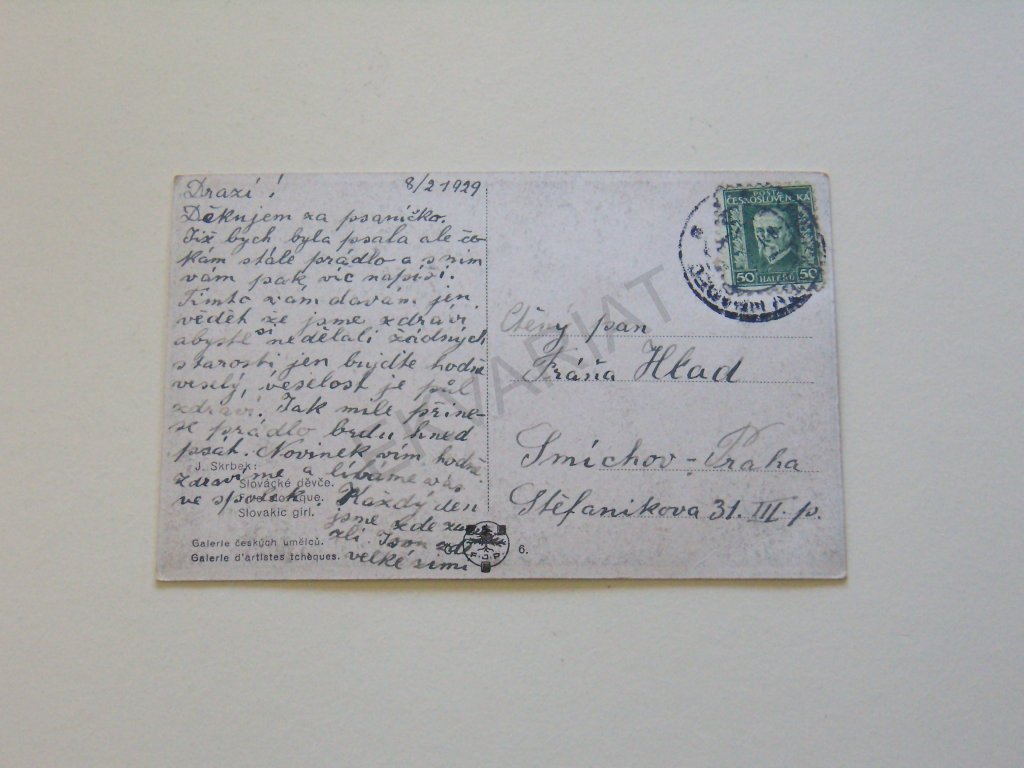 Drazí! 8/2 1929
Děkujem za psaníčko.
Již bych byla psala ale če-
kám stále prádlo a s ním
vám pak víc napíši.
Tímto vam davám jen
vědět že jsme zdraví
abyste si nedělali žádných
starosti jen bujdte hodně
veselý, veselost je půl
zdraví. Jak mile přine-
se prádlo budu hned
psát. Novinek vím hodně
zdraví me a líbáme vás
ve spolek. Každý den
jsme zde
zlí. Jsou zde
velké zimi
J. Skrbek:
Slovácké děvče.
Slovakic girl.
Galerie českých umělců.
Galerie d'artistes tchèques.
6.
POŠTA
ČESKOSLOVENSKÁ
50 HALÉŘŮ 50
Ctěný pan
Fráňa Hlad
Smíchov - Praha
Štěfanikova 31. III. p.